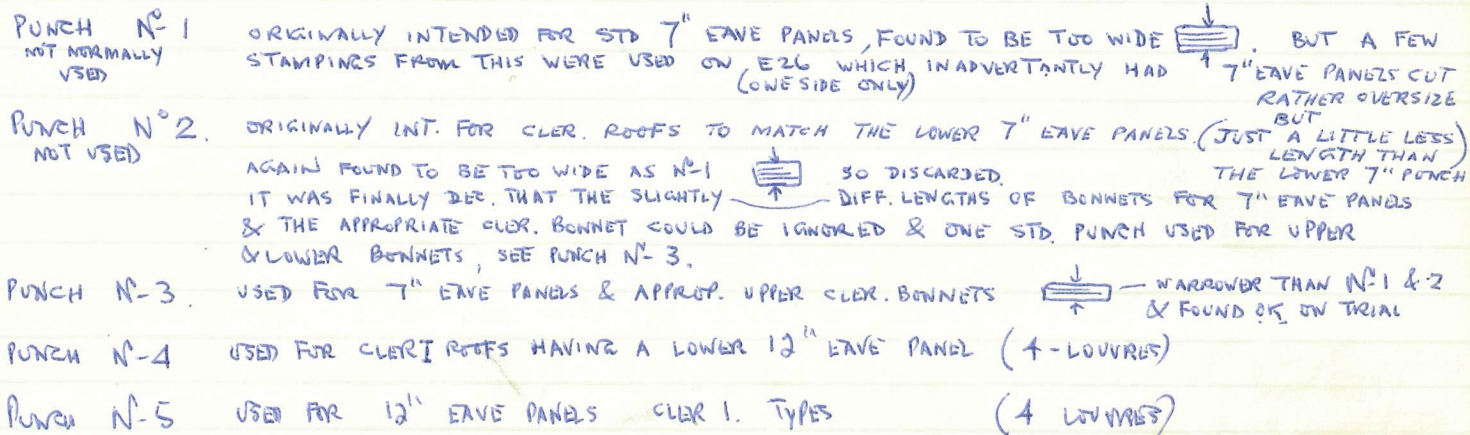 PUNCH Nº 1 ORIGINALLY INTENDED FOR STD 7" EAVE PANELS, FOUND TO BE TOO WIDE . BUT A FEW
NOT NORMALLY USED STAMPINGS FROM THIS WERE USED ON E26 WHICH INADVERTANTLY HAD 7" EAVE PANELS CUT
(ONE SIDE ONLY) RATHER OVERSIZE
PUNCH Nº 2. ORIGINALLY INT. FOR CLER. ROOFS TO MATCH THE LOWER 7" EAVE PANELS. (BUT JUST A LITTLE LESS
NOT USED LENGTH THAN)
AGAIN FOUND TO BE TOO WIDE AS Nº-1 SO DISCARDED. THE LOWER 7" PUNCH
IT WAS FINALLY DEC. THAT THE SLIGHTLY DIFF. LENGTHS OF BONNETS FOR 7" EAVE PANELS
& THE APPROPRIATE CLER. BONNET COULD BE IGNORED & ONE STD. PUNCH USED FOR UPPER
& LOWER BONNETS, SEE PUNCH Nº- 3.
PUNCH Nº-3. USED FOR 7" EAVE PANELS & APPROP. UPPER CLER. BONNETS — NARROWER THAN Nº-1 & 2
& FOUND OK ON TRIAL
PUNCH Nº-4 USED FOR CLER I ROOFS HAVING A LOWER 12" EAVE PANEL (4-LOUVRES)
PUNCH Nº-5 USED FOR 12" EAVE PANELS CLER 1. TYPES (4 LOUVRES)